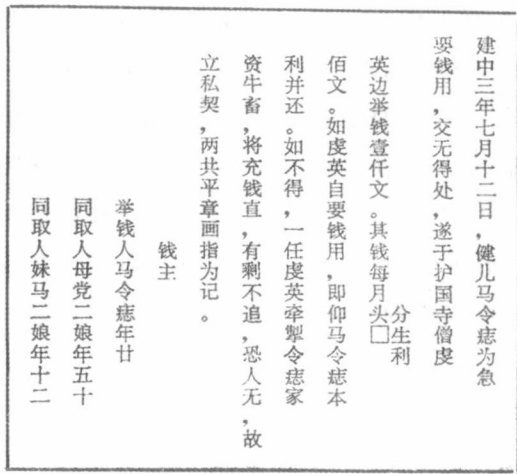 建中三年七月十二日，健儿马令痣为急
要钱用，交无得处，遂于护国寺僧虔
分生利
英边举钱壹仟文。其钱每月头□
佰文。如虔英自要钱用，即仰马令痣本
利并还。如不得，一任虔英牵掣令痣家
资牛畜，将充钱直，有剩不追，恐人无，故
立私契，两共平章画指为记。
钱主
举钱人马令痣年廿
同取人母党二娘年五十
同取人妹马二娘年十二